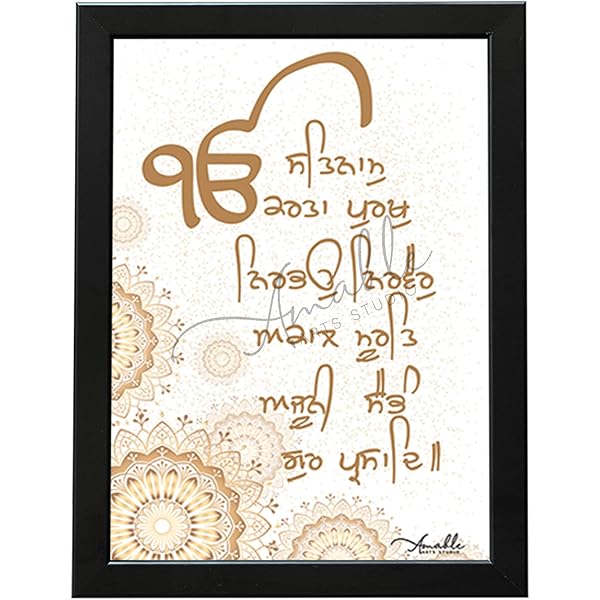 ੴ ਸਤਿਨਾਮੁ
ਕਰਤਾ ਪੁਰਖੁ
ਨਿਰਭਉ ਨਿਰਵੈਰੁ
ਅਕਾਲ ਮੂਰਤਿ
ਅਜੂਨੀ ਸੈਭੰ
ਗੁਰ ਪ੍ਰਸਾਦਿ॥
Amable
ARTS STUDIO
Amable
ARTS STUDIO